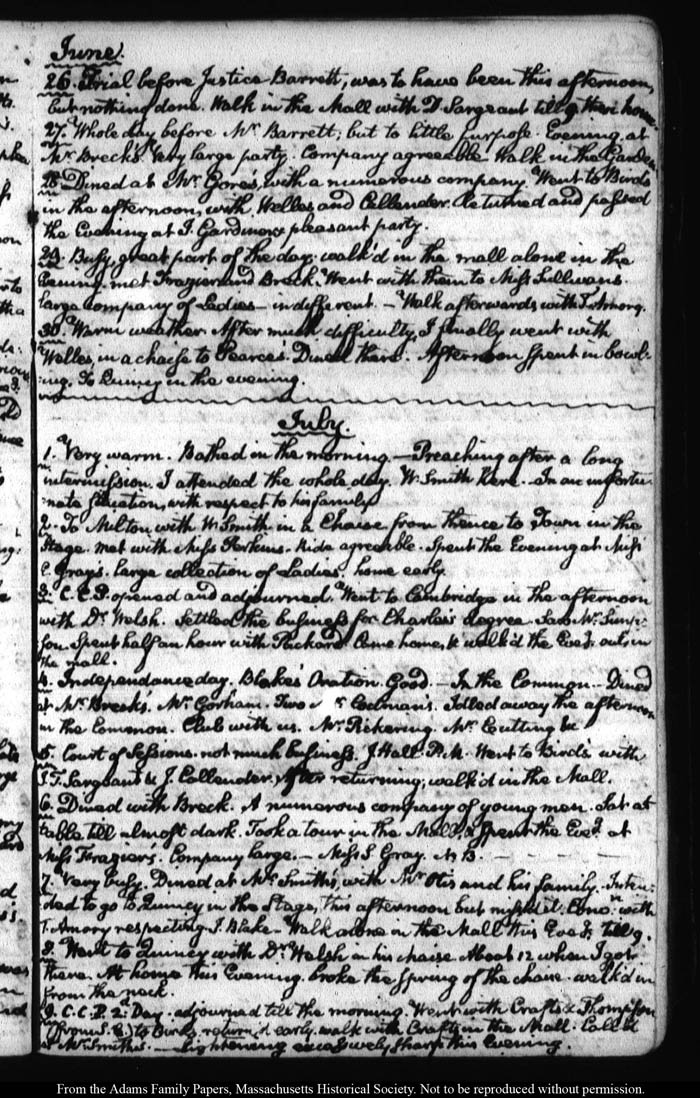 June.
26. Trial before Justice Barrett, was to have been this afternoon,
but nothing done. Walk in the Mall with D. Sargeant till 9
27. Whole day before Mr. Barrett; but to little purpose. Evening at
Mr. Breck's. Very large party. Company agreeable. Walk in the Garden
28. Dined at Mr. Gore's, with a numerous company. Went to Birds
in the afternoon, with Welles and Callender. Returned and passed
the Evening at J. Gardiner's pleasant party.
29. Busy, great part of the day: walk'd in the mall alone in the
Evening. met Frazier and Breck. Went with them to Miss Sullivans.
large company of Ladies—indifferent. — Walk afterwards with T. Amory.
30. Warm weather. After much difficulty, I finally went with
Welles, in a chaise to Pearce's. Dined there. Afternoon spent in bowl-
ing. To Quincy in the evening.
July.
1. Very warm. Bathed in the morning.—Preaching after a long
intermission. I attended the whole day. W. Smith here. In an unfortu-
nate situation, with respect to his family
2. To Milton with W. Smith in a Chaise from thence to Town in the
Stage. met with Miss Perkins. Ride agreeable. Spent the Evening at Miss
Gray's. large collection of Ladies. home early.
3. C.C.P. opened and adjourned. Went to Cambridge in the afternoon
with Dr. Welsh. Settled the business for Charles's degree. Saw Mr. Simp-
son. Spent half an hour with Pickard. Came home, & walk'd the Eveg. out, in
the mall.
4. Independance day. Blake's Oration. Good.—In the Common—Dined
at Mr. Breck's. Mr. Gorham. Two Codmans. Idled away the afternoon
in the Common. Club with us. Mr. Pickering. Mr. Cutting &c
5. Court of Sessions. not much business. J. Hall. P.M. Went to Bird's with
T. Sargeant & J. Callender. After returning, walk'd in the Mall.
6. Dined with Breck. A numerous company of young men. Sat at
table till almost dark. Took a tour in the Mall, & spent the Eveg. at
Miss Frazier's. Company large.—Miss S. Gray. N.B.
7. Very busy. Dined at Mr. Smith's, with Mr. Otis and his family. Inten-
ded to go to Quincy in the Stage, this afternoon but miss'd it. Conv: with
T. Amory respecting J. Blake—Walk alone in the Mall this Eveg. till 9.
8. Went to Quincy with Dr. Welsh in his chaise About 12 when I got
there. At home this Evening. broke the spring of the chaise. walk'd in
from the neck.
9. C.C.P. 2d. Day. adjourned till the morning. Went with Crafts & Thompson
to Birds, return'd early. walk with Crafts in the Mall. Call'd
at Mr. Smith's.—Lightening excessively sharp this Evening.
From the Adams Family Papers, Massachusetts Historical Society. Not to be reproduced without permission.